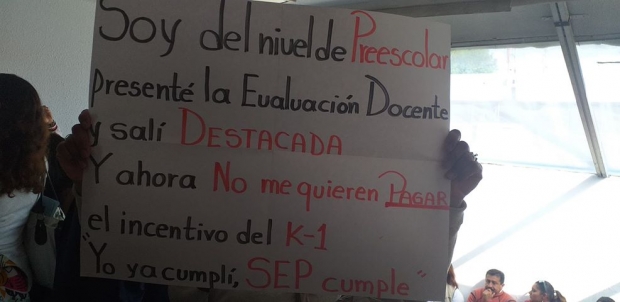 Soy del nivel de Preescolar
Presenté la Evaluación Docente
y salí DESTACADA
Y ahora No me quieren PAGAR
el incentivo del K-1
"Yo ya cumplí, SEP cumple"